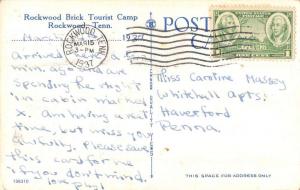 Rockwood Brick Tourist Camp
Rockwood, Tenn.
POST CARD
ROCKWOOD, TENN.
MAR 15
3-PM
1937
Arrived here a
min. ago and are
spending the night
in cabin marked
X. Am having a nice
time, but miss you
awfully. Please save
this card for me
if you don't mind.
Love
Miss Caroline Massey
Whitehall Apts.
Haverford
Penna.
THIS SPACE FOR ADDRESS ONLY